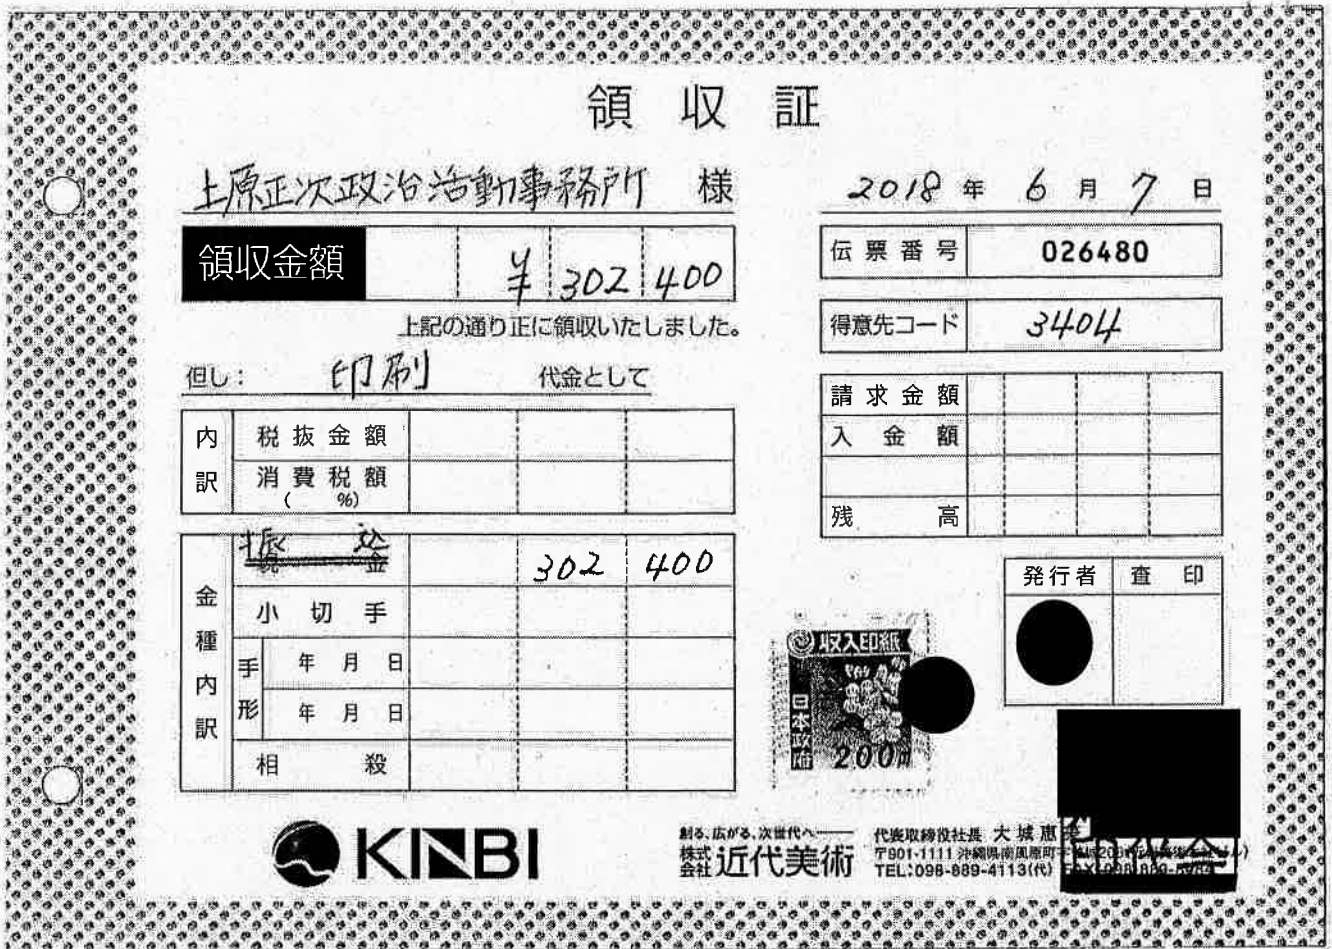 領収証
上原正次政治活動事務所 様
2018年 6月 7日
領収金額 ¥302400
伝票番号 026480
上記の通り正に領収いたしました。
得意先コード 3404
但し: 印刷 代金として
請求金額
入金額
残高
内訳
税抜金額
消費税額
( %)
金種内訳
振込
現金 302400
小切手
手形
年 月 日
年 月 日
相殺
発行者 査印
収入印紙
日本政府
200円
KINBI
創る、広がる、次世代へ
株式会社 近代美術
代表取締役社長 大城恵
〒901-1111 沖縄県南風原町字
TEL:098-889-4113(代)